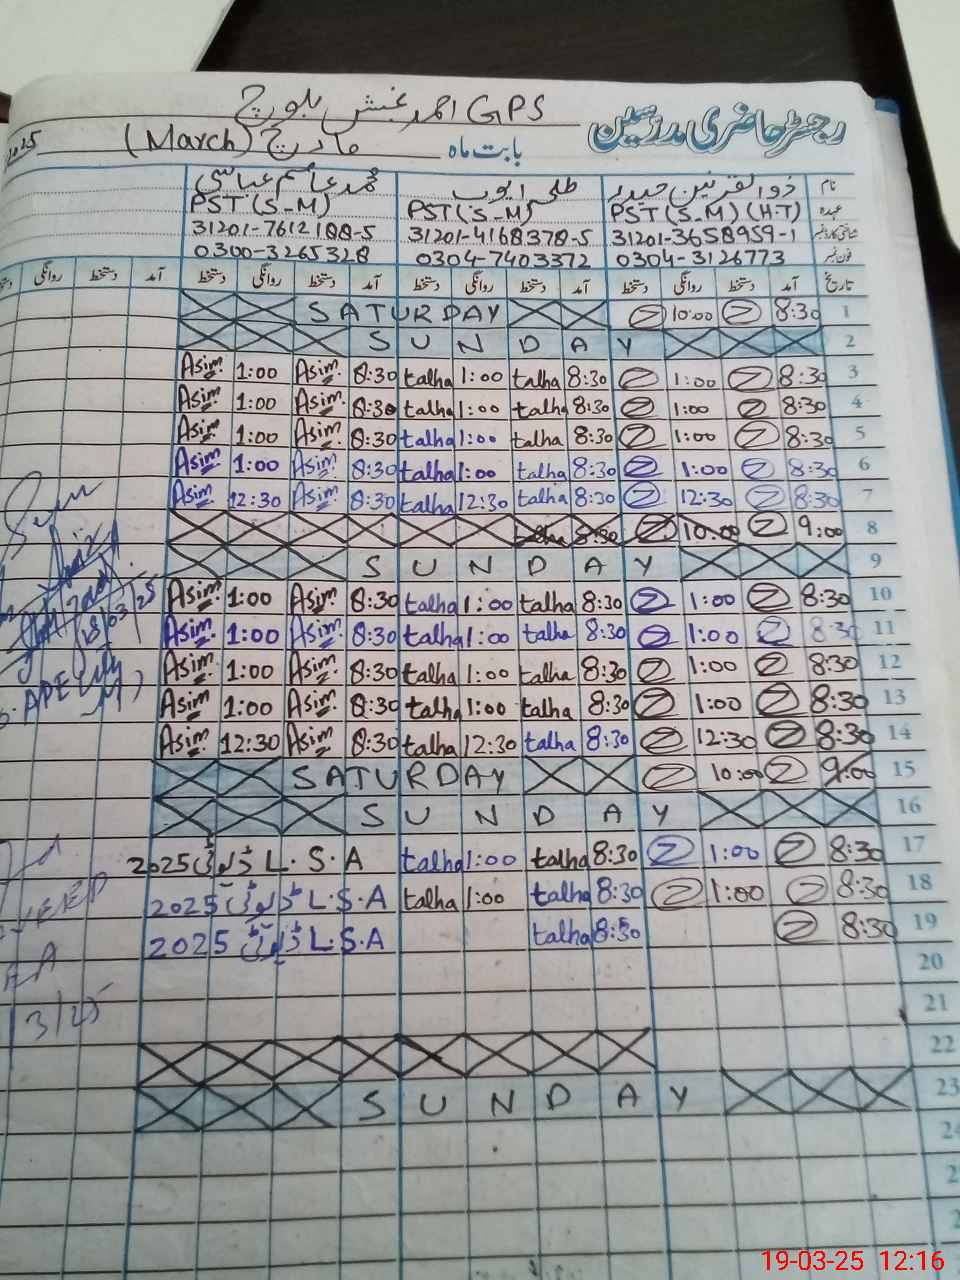 GPS احمد بخش بلوچ
رجسٹر حاضری مدرسین
بابت ماہ مارچ (March) 2025
نام ذوالقرنین حیدر طلحہ ایوب محمد عاصم عباسی
عہدہ PST (S-M) (H.T) PST (S-M) PST (S-M)
شناختی کارڈ نمبر 31201-3658959-1 31201-4168378-5 31201-7612188-5
فون نمبر 0304-3126773 0304-7403372 0300-3265328
تاریخ آمد دستخط روانگی دستخط آمد دستخط روانگی دستخط آمد دستخط روانگی دستخط آمد دستخط روانگی
SATURDAY 10:00 8:30 1
SUNDAY 2
Asim 1:00 Asim 8:30 talha 1:00 talha 8:30 1:00 8:30 3
Asim 1:00 Asim 8:30 talha 1:00 talha 8:30 1:00 8:30 4
Asim 1:00 Asim 8:30 talha 1:00 talha 8:30 1:00 8:30 5
Asim 1:00 Asim 8:30 talha 1:00 talha 8:30 1:00 8:30 6
Asim 12:30 Asim 8:30 talha 12:30 talha 8:30 12:30 8:30 7
talha 8:30 10:00 9:00 8
SUNDAY 9
Asim 1:00 Asim 8:30 talha 1:00 talha 8:30 1:00 8:30 10
Asim 1:00 Asim 8:30 talha 1:00 talha 8:30 1:00 8:30 11
Asim 1:00 Asim 8:30 talha 1:00 talha 8:30 1:00 8:30 12
Asim 1:00 Asim 8:30 talha 1:00 talha 8:30 1:00 8:30 13
Asim 12:30 Asim 8:30 talha 12:30 talha 8:30 12:30 8:30 14
SATURDAY 10:00 9:00 15
SUNDAY 16
L.S.A ڈیوٹی 2025 talha 1:00 talha 8:30 1:00 8:30 17
L.S.A ڈیوٹی 2025 talha 1:00 talha 8:30 1:00 8:30 18
L.S.A ڈیوٹی 2025 talha 8:30 8:30 19
20
21
22
SUNDAY 23
24
18/03/25
19-03-25 12:16